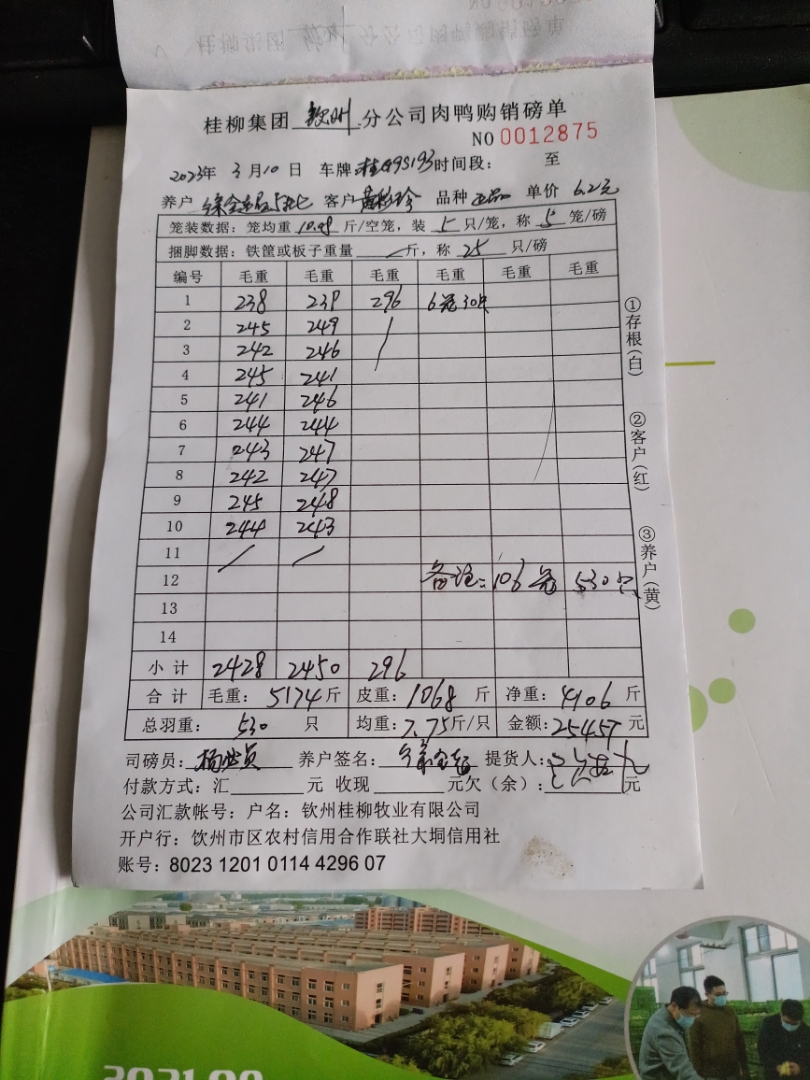 桂柳集团 钦州 分公司肉鸭购销磅单
NO 0012875
2023年 3月10日 车牌: 时间段: 至
养户 客户 品种 正品 单价 6.2元
笼装数据: 笼均重 10.08 斤/空笼, 装 5 只/笼, 称 5 笼/磅
捆脚数据: 铁筐或板子重量 / 斤, 称 25 只/磅
编号 毛重 毛重 毛重 毛重 毛重 毛重
1 238 239 296 6笼30只
2 245 249 /
3 242 246
4 245 241
5 241 246
6 244 244
7 243 247
8 242 247
9 245 248
10 244 243
11 / /
12 备注: 106笼 530只
13
14
小计 2428 2450 296
合计 毛重: 5174斤 皮重: 1068斤 净重: 4106斤
总羽重: 530 只 均重: 7.75斤/只 金额: 25457元
司磅员: 养户签名: 提货人:
付款方式: 汇 元 收现 元欠(余): 元
公司汇款帐号: 户名: 钦州桂柳牧业有限公司
开户行: 饮州市区农村信用合作联社大垌信用社
账号: 8023 1201 0114 4296 07
①存根(白)
②客户(红)
③养户(黄)